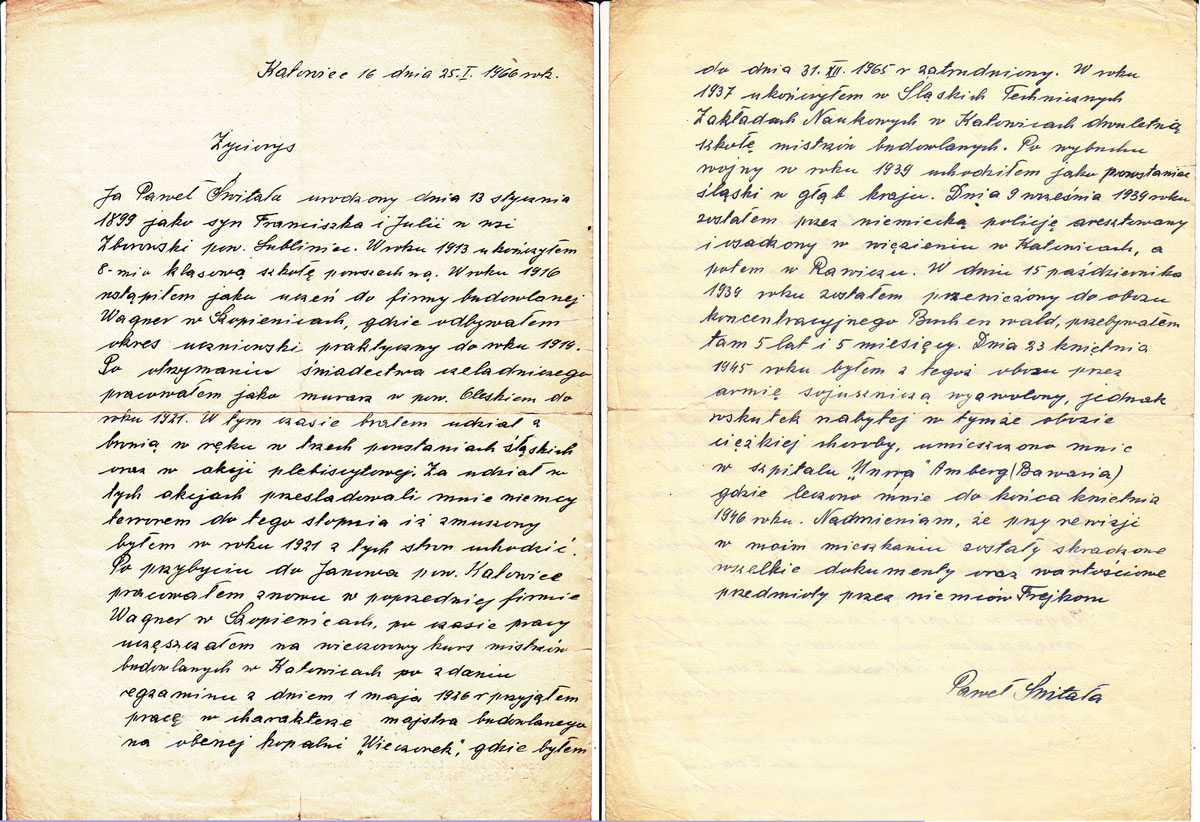 Katowice 16 dnia 25.I. 1966 rok.
Życiorys
Ja Paweł Świtała urodzony dnia 13 stycznia
1899 jako syn Franciszka i Julii w wsi
Zborowski pow. Lubliniec. W roku 1913 ukończyłem
8-mio klasową szkołę powszechną. W roku 1916
wstąpiłem jako uczeń do firmy budowlanej
Wagner w Szopienicach, gdzie odbywałem
okres uczniowski praktyczny do roku 1919.
Po otrzymaniu świadectwa czeladniczego
pracowałem jako murarz w pow. Oleskiem do
roku 1921. W tym czasie brałem udział z
bronią w ręku w trzech powstaniach śląskich
oraz w akcji plebiscytowej. Za udział w
tych akcjach prześladowali mnie niemcy
terrorem do tego stopnia iż zmuszony
byłem w roku 1921 z tych stron uchodzić.
Po przybyciu do Janowa pow. Katowice
pracowałem znowu w poprzedniej firmie
Wagner w Szopienicach, po czasie pracy
uczęszczałem na wieczorowy kurs mistrzów
budowlanych w Katowicach po zdaniu
egzaminu z dniem 1 maja 1926 r przyjąłem
pracę w charakterze majstra budowlanego
na obecnej kopalni "Wieczorek", gdzie byłem
do dnia 31. XII. 1965 r zatrudniony. W roku
1937 ukończyłem w Śląskich Technicznych
Zakładach Naukowych w Katowicach dwuletnią
szkołę mistrzów budowlanych. Po wybuchu
wojny w roku 1939 uchodziłem jako powstaniec
śląski w głąb kraju. Dnia 9 września 1939 roku
zostałem przez niemiecką policję aresztowany
i osadzony w więzieniu w Katowicach, a
potem w Rawiczu. W dniu 15 października
1939 roku zostałem przewieziony do obozu
koncentracyjnego Buchenwald, przebywałem
tam 5 lat i 5 miesięcy. Dnia 23 kwietnia
1945 roku byłem z tegoż obozu przez
armię sojuszniczą wyzwolony, jednak
wskutek nabytej w tymże obozie
ciężkiej choroby, umieszczono mnie
w szpitalu "Unrra" Amberg (Bawaria)
gdzie leczono mnie do końca kwietnia
1946 roku. Nadmieniam, że przy rewizji
w moim mieszkaniu zostały skradzone
wszelkie dokumenty oraz wartościowe
przedmioty przez niemców Frejkom
Paweł Świtała